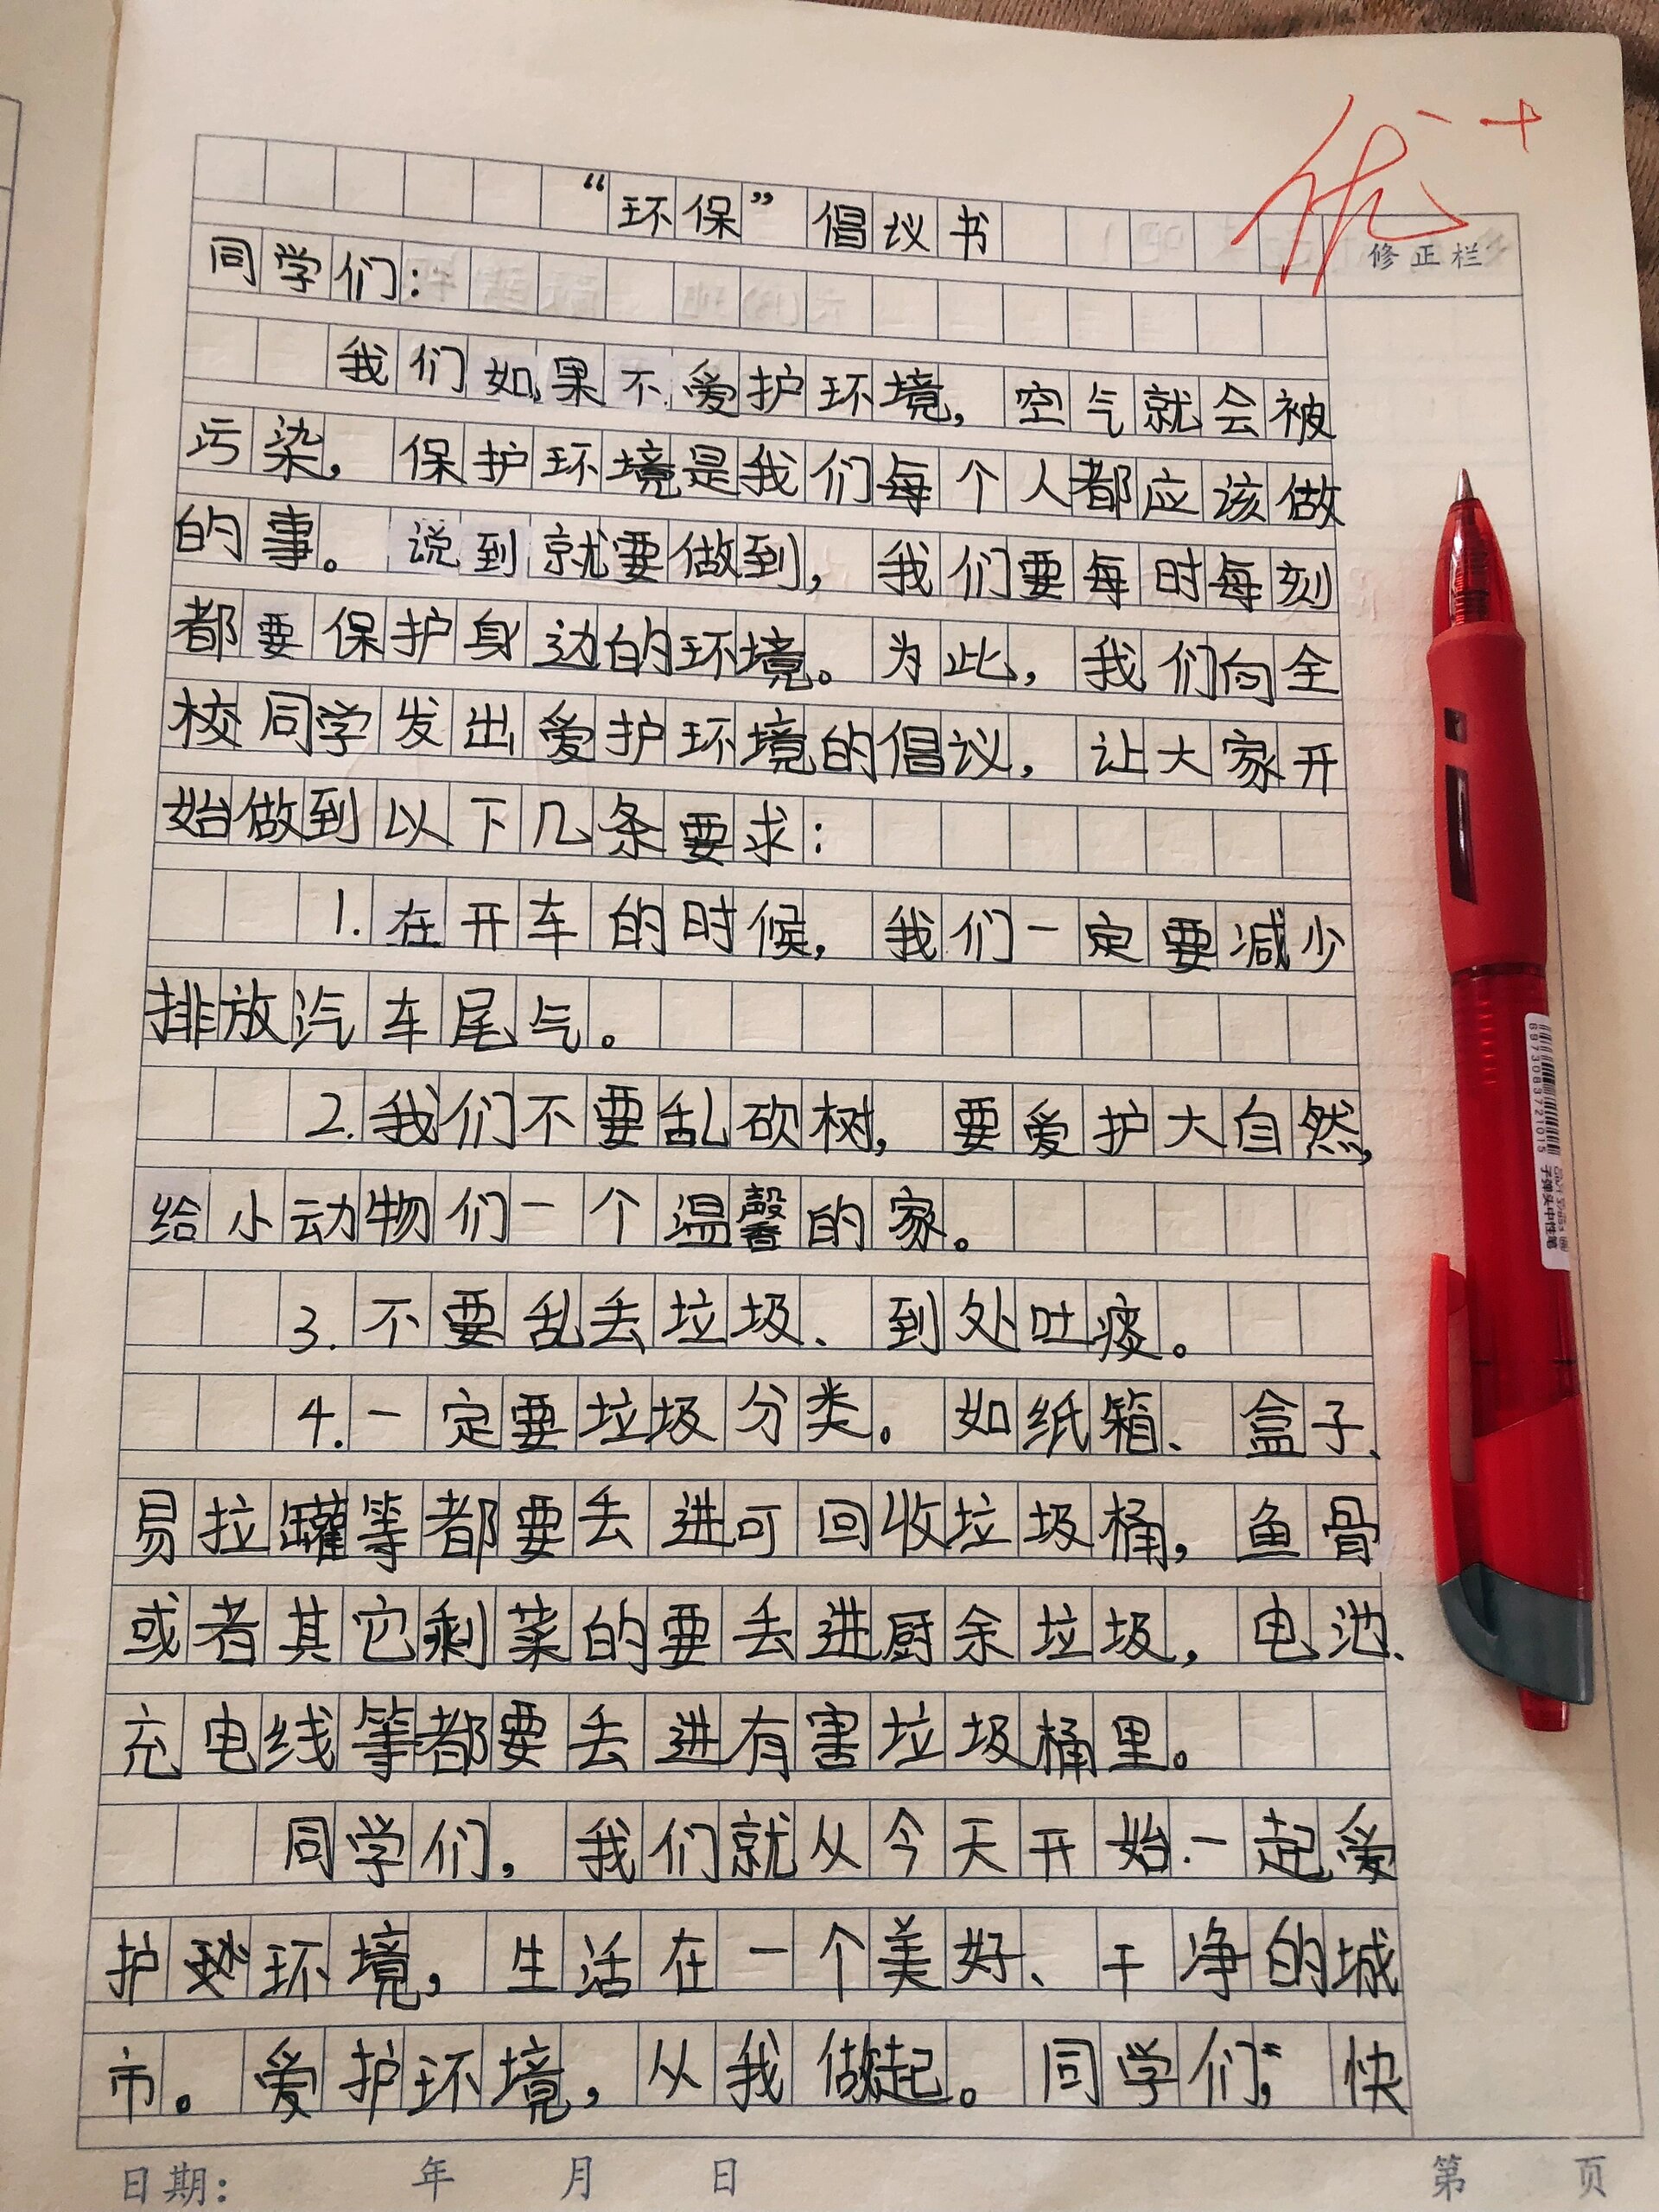 优+
“环保”倡议书
修正栏
同学们：
我们如果不爱护环境，空气就会被
污染，保护环境是我们每个人都应该做
的事。说到就要做到，我们要每时每刻
都要保护身边的环境。为此，我们向全
校同学发出爱护环境的倡议，让大家开
始做到以下几条要求：
1.在开车的时候，我们一定要减少
排放汽车尾气。
2.我们不要乱砍树，要爱护大自然，
给小动物们一个温馨的家。
3.不要乱丢垃圾、到处吐痰。
4.一定要垃圾分类。如纸箱、盒子、
易拉罐等都要丢进可回收垃圾桶，鱼骨
或者其它剩菜的要丢进厨余垃圾，电池、
充电线等都要丢进有害垃圾桶里。
同学们，我们就从今天开始一起爱
护环境，生活在一个美好、干净的城
市。爱护环境，从我做起。同学们，快
日期： 年 月 日
第 页
6973083721015
子弹头中性笔